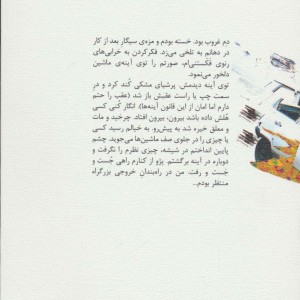 دم غروب بود. خسته بودم و مزه‌ی سیگار بعد از کار
در دهانم به تلخی می‌زد. فکرکردن به خرابی‌های
رنوی فکسنی‌ام، صورتم را توی آینه‌ی ماشین
دلخور می‌نمود.
توی آینه دیدمش. پرشیای مشکی کُند کرد و در
سمت چپ یا راست عقبش باز شد (عقب را حتم
دارم اما امان از این قانون آینه‌ها). انگار کُنی کسی
هُلش داده باشد بیرون، بیرون افتاد. چرخید و مات
و معلق خیره شد به پیش‌رو. به خیالم رسید کسی
یا چیزی را در جلوی صف ماشین‌ها می‌جوید. چشم
پایین انداختم در شیشه، چیزی نظرم را نگرفت و
دوباره در آینه برگشتم. پژو از کنارم راهی جُست و
جَست و رفت. من در راه‌بندان خروجی بزرگراه
منتظر بودم...